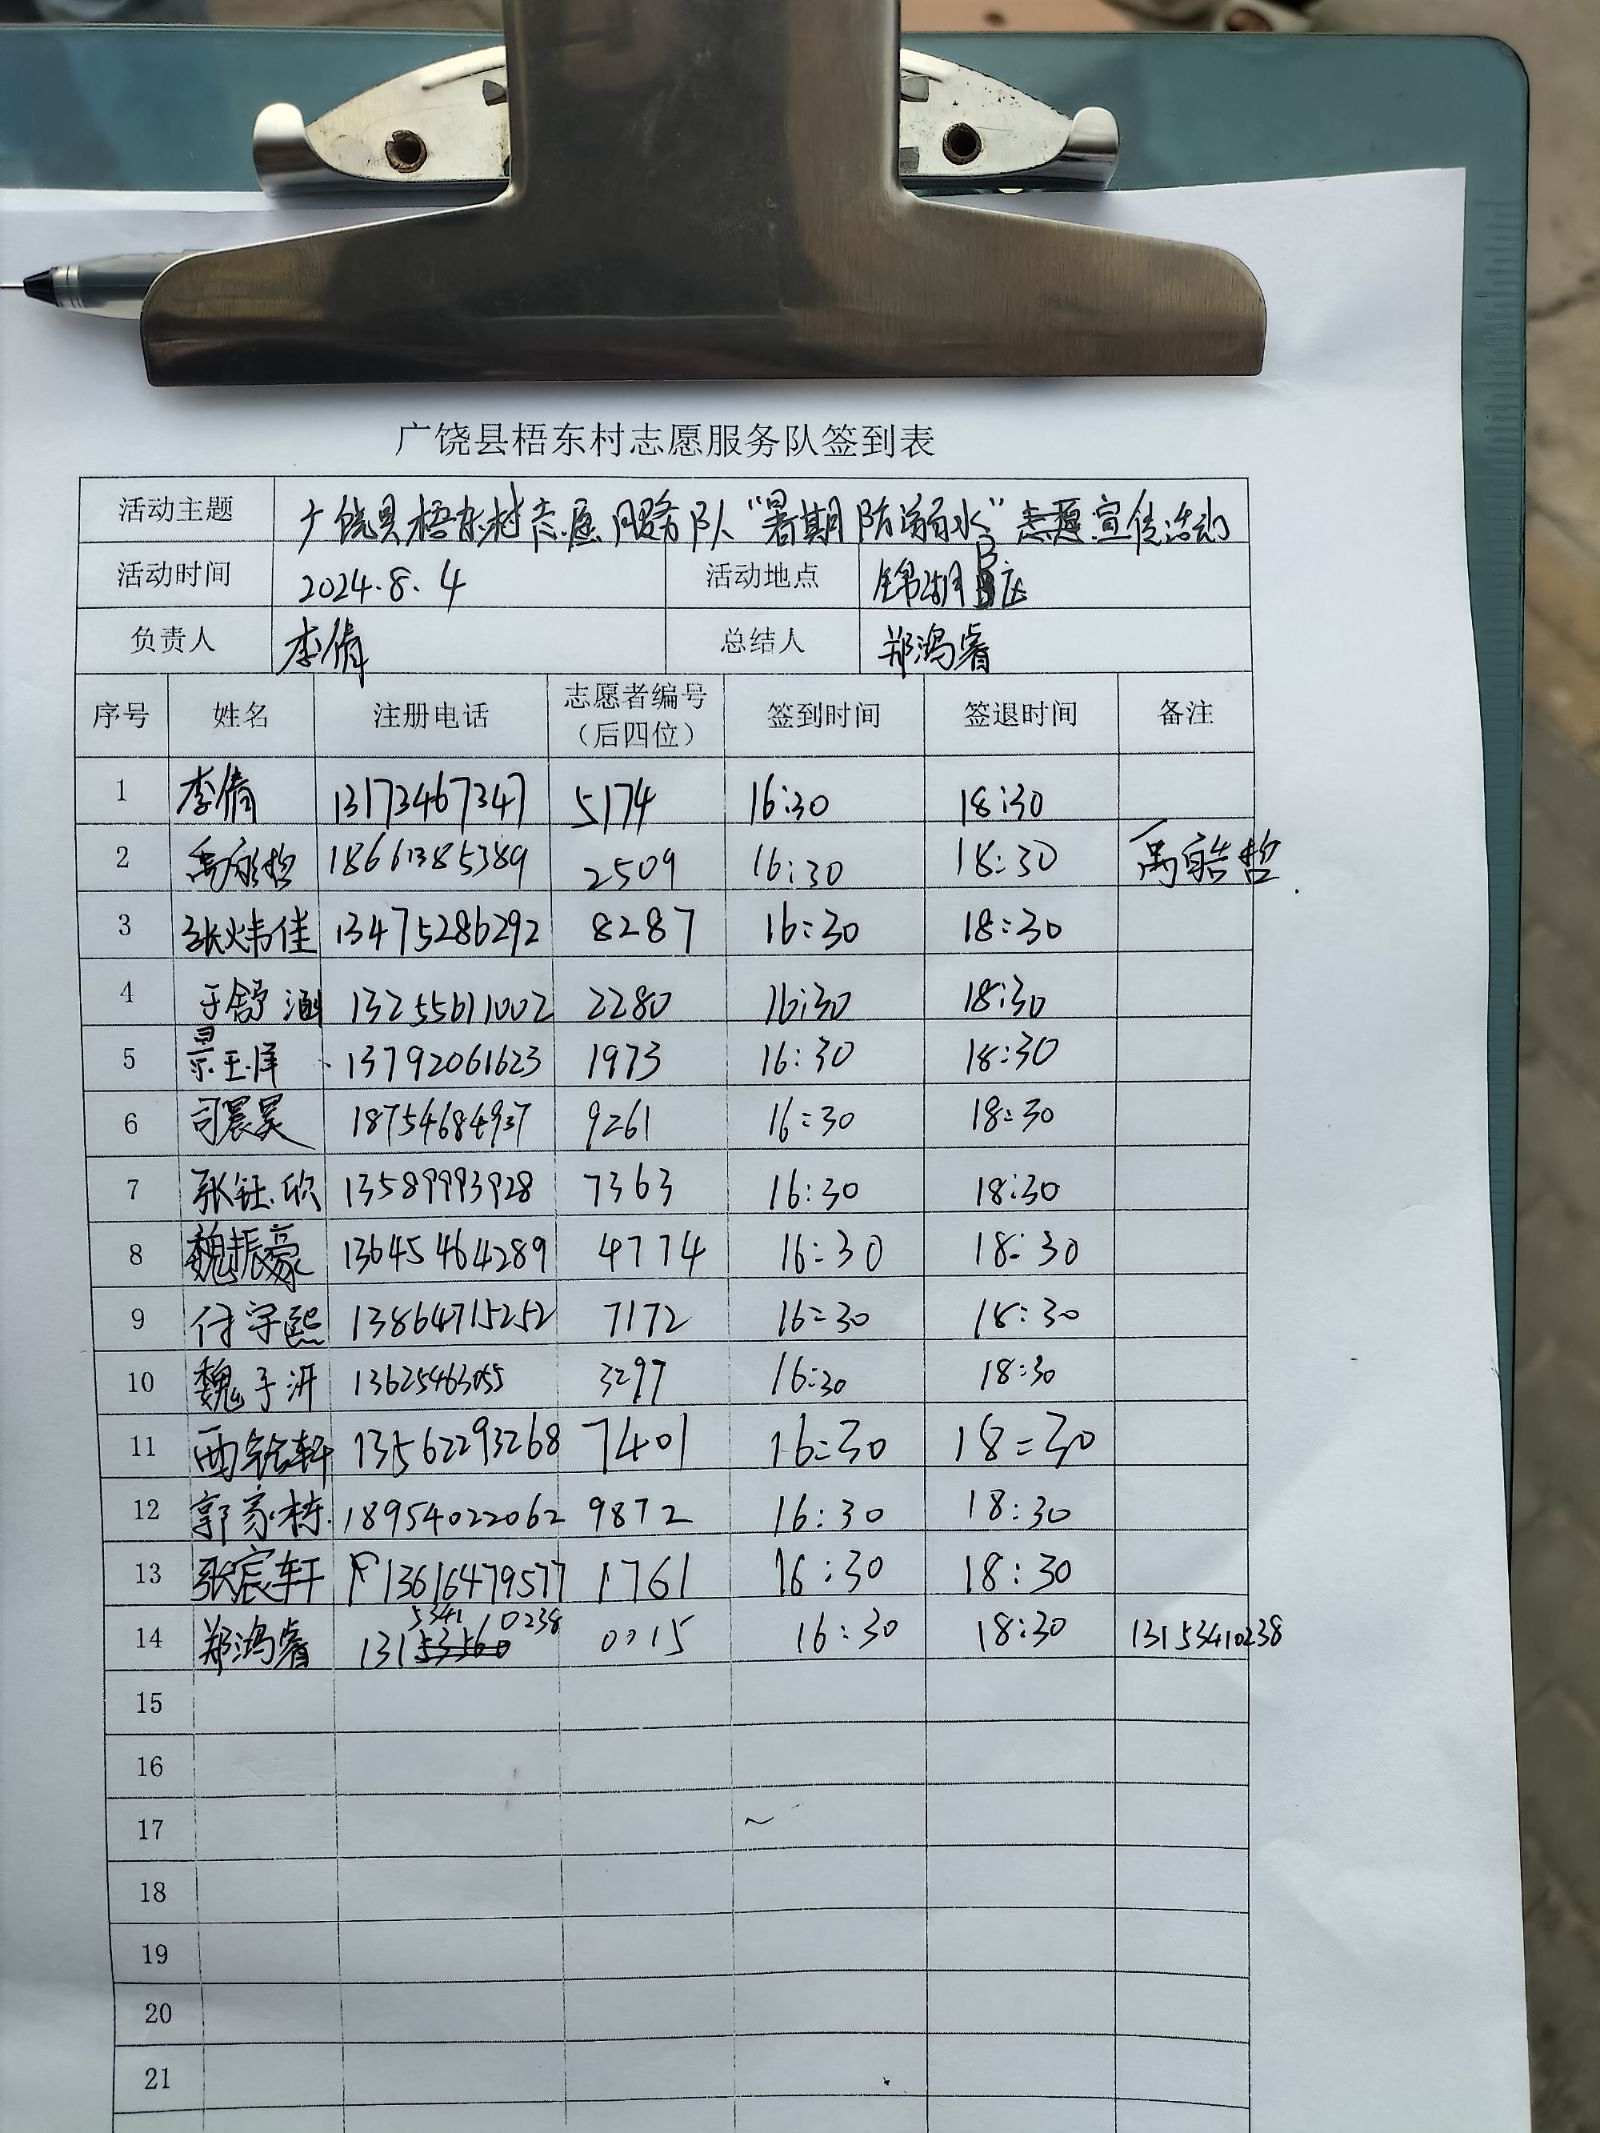 广饶县梧东村志愿服务队签到表
活动主题 广饶县梧东村志愿服务队“暑期防溺水”志愿宣传活动
活动时间 2024.8.4 活动地点 锦湖B区
负责人 李倩 总结人 郑鸿睿
序号 姓名 注册电话 志愿者编号（后四位） 签到时间 签退时间 备注
1 李倩 13173467347 5174 16:30 18:30
2 禹皓哲 18661385389 2509 16:30 18:30 禹皓哲
3 张炜佳 13475286292 8287 16:30 18:30
4 于舒涵 13255611002 2280 16:30 18:30
5 景玉泽 13792061623 1973 16:30 18:30
6 司晨昊 18754684937 9261 16:30 18:30
7 张钰欣 13589993928 7363 16:30 18:30
8 魏振豪 13645464289 4774 16:30 18:30
9 付宇熙 13864715252 7172 16:30 18:30
10 魏子汧 13625463055 3297 16:30 18:30
11 西铨轩 13562293268 7401 16:30 18:30
12 郭家栋 18954022062 9872 16:30 18:30
13 张宸轩 13616479577 1761 16:30 18:30
14 郑鸿睿 13153410238 0015 16:30 18:30 13153410238
15
16
17
18
19
20
21